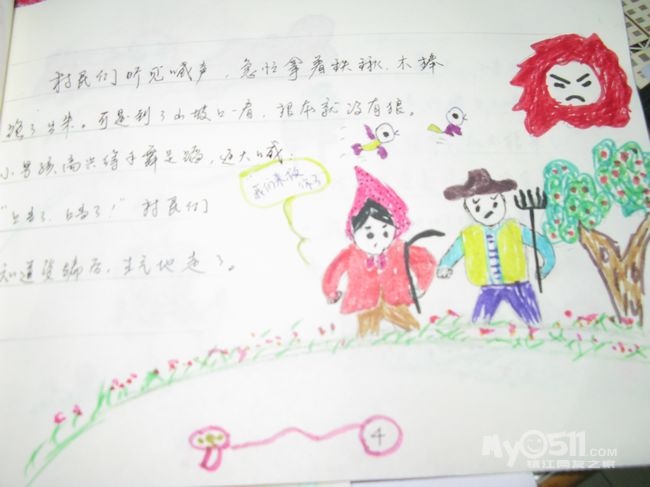 村民们听见喊声，急忙拿着铁锹、木棒
跑了出来。可是到了山坡口一看，根本就没有狼。
小男孩高兴得手舞足蹈，还大喊：
“上当了、上当了！” 村民们
知道受骗后，生气地走了。
我们来
了
4
My0511.com
镇江网友之家